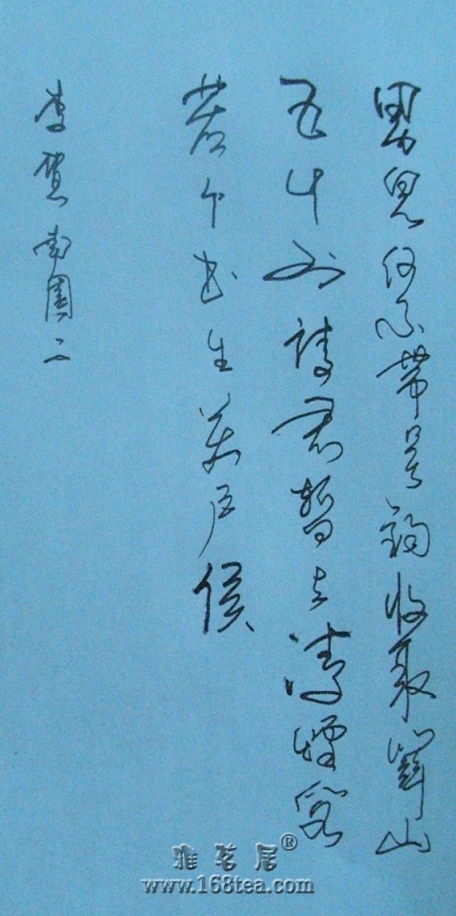 男兒何不帶吴鈎收取關山
五十州請君暫上凌煙閣
若个书生萬户侯
李賀南園二
雅茗居®
www.168tea.com